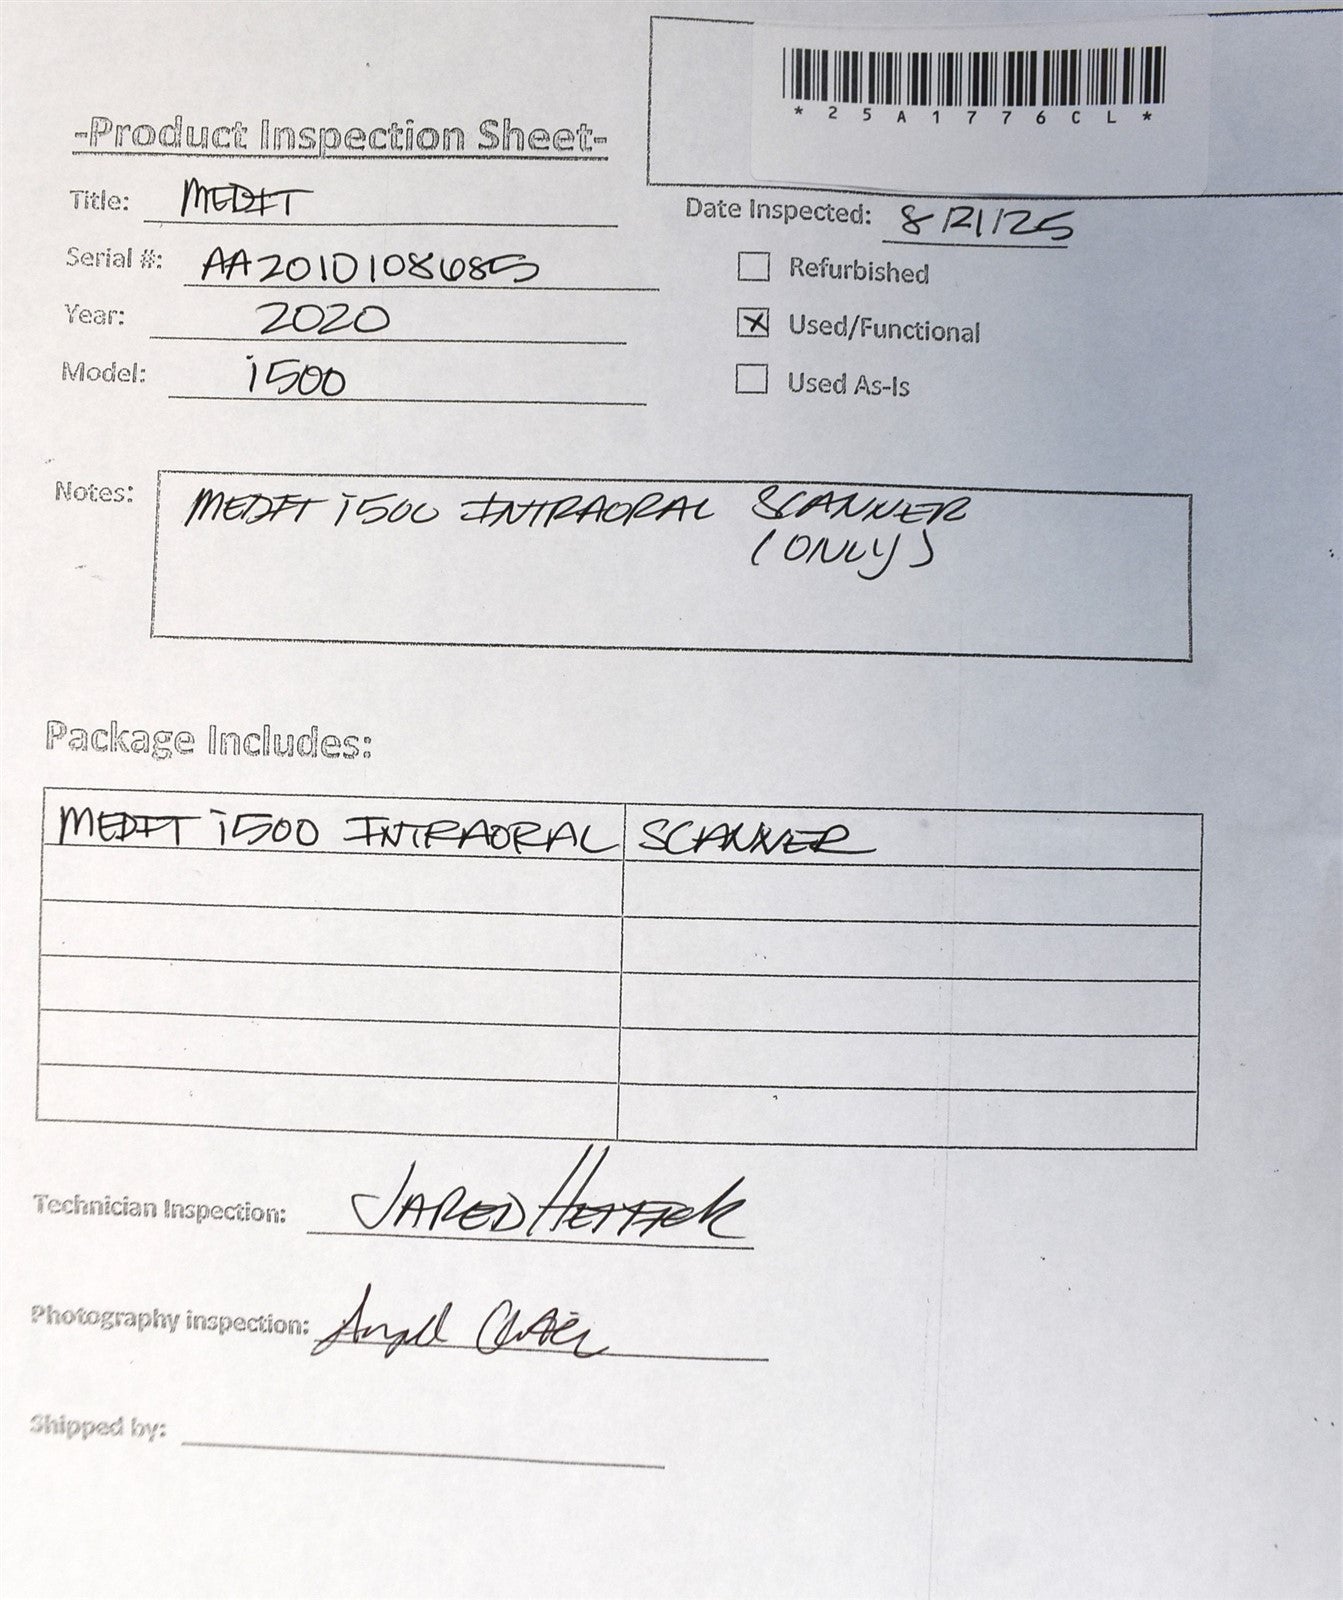 *25A1776CL*
-Product Inspection Sheet-
Title: MEDIT
Date Inspected: 8/21/25
Serial #: AA2010108685
Refurbished
Year: 2020
X Used/Functional
Model: i500
Used As-Is
Notes: MEDIT i500 INTRAORAL SCANNER
(ONLY)
Package Includes:
MEDIT i500 INTRAORAL SCANNER
Technician Inspection: JARED
Photography inspection: Angel
Shipped by: